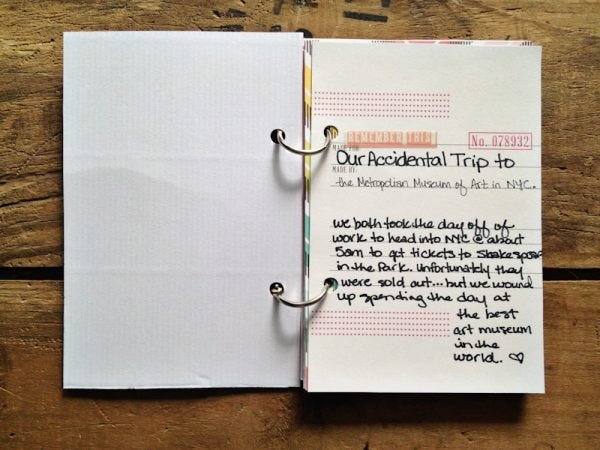 REMEMBER THIS
No. 078932
MADE FOR:
Our Accidental Trip to
MADE BY:
the Metropolitan Museum of Art in NYC.
we both took the day off of
work to head into NYC @ about
5am to get tickets to Shakespear
in the Park. Unfortunately they
were sold out... but we wound
up spending the day at
the best
art museum
in the
world. ♡